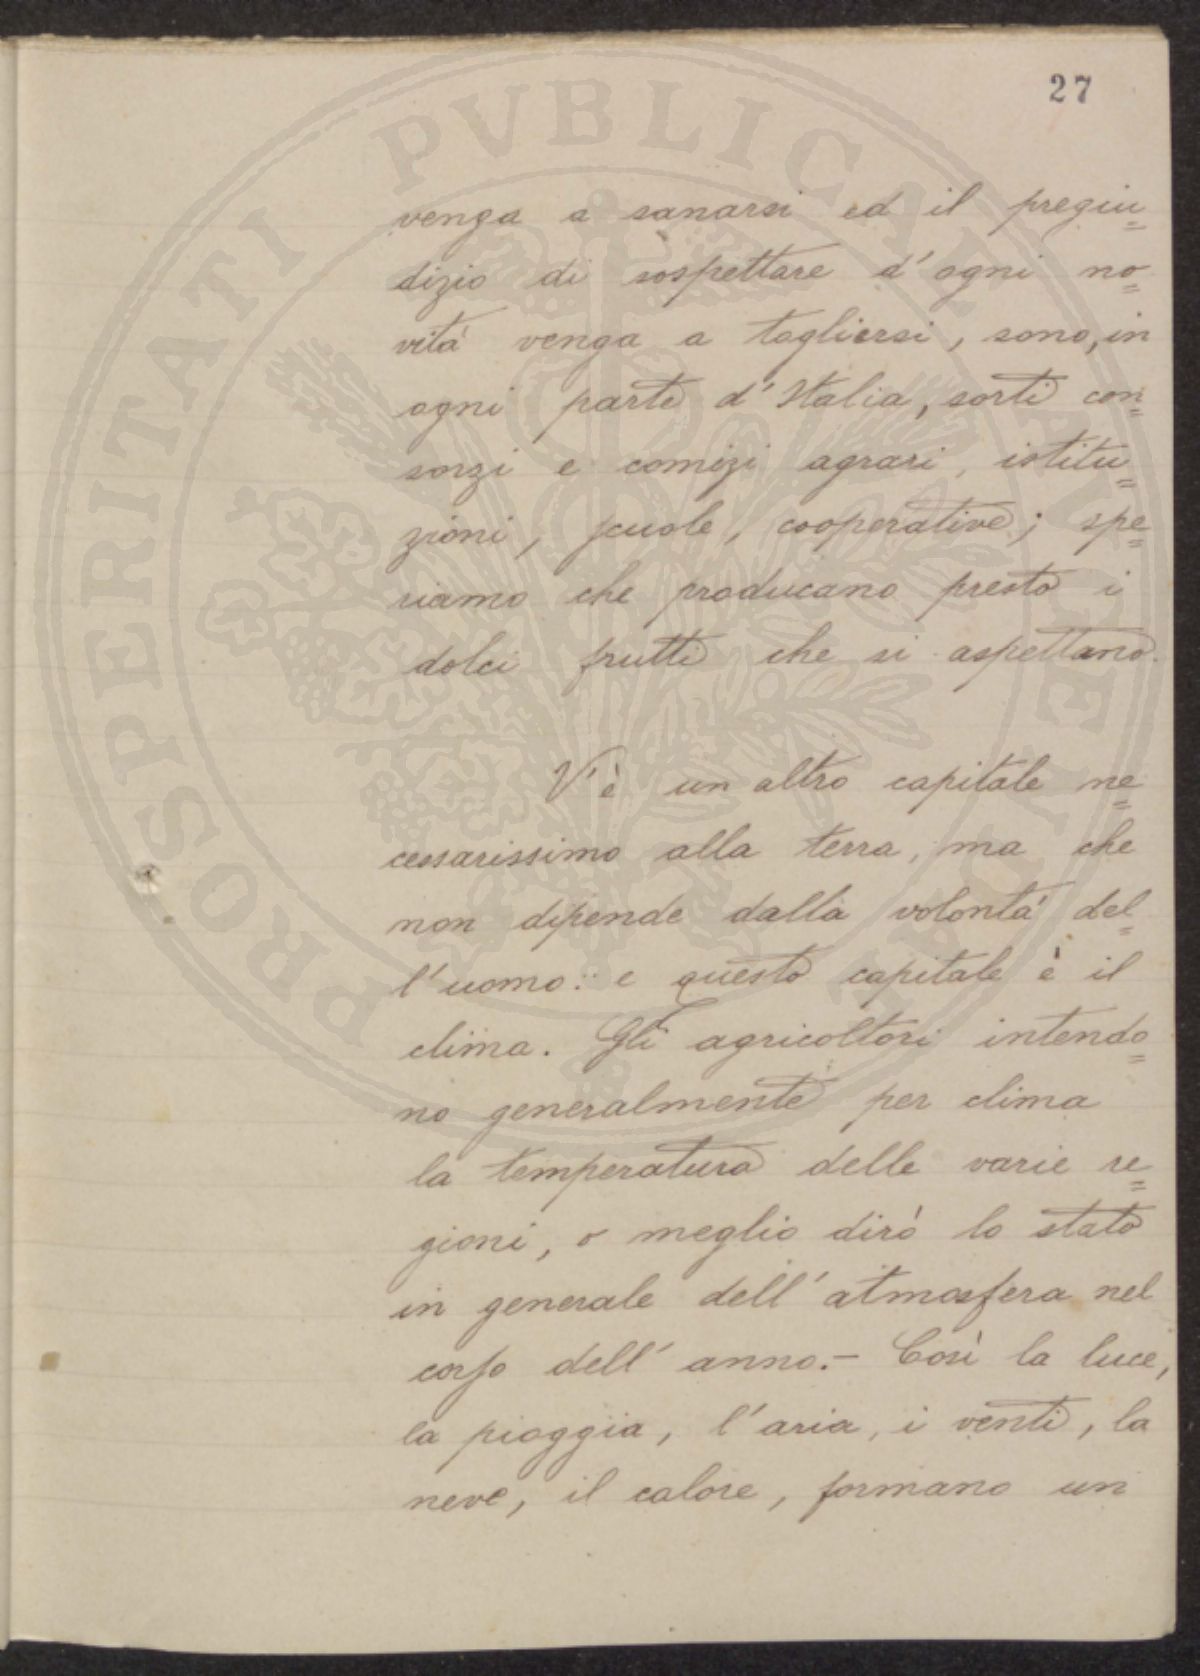 27
PROSPERITATI PVBLICAE AVGENDAE
venga a sanarsi ed il pregiu=
dizio di sospettare d'ogni no=
vità venga a togliersi, sono, in
ogni parte d'Italia, sorti con=
sorzi e comizi agrari, istitu=
zioni, scuole, cooperative; spe=
riamo che producano presto i
dolci frutti che si aspettano.
V'è un altro capitale ne=
cessarissimo alla terra, ma che
non dipende dalla volontà del=
l'uomo: e questo capitale è il
clima. Gli agricoltori intendo=
no generalmente per clima
la temperatura delle varie re=
gioni, o meglio dirò lo stato
in generale dell'atmosfera nel
corso dell'anno.- Così la luce,
la pioggia, l'aria, i venti, la
neve, il calore, formano un